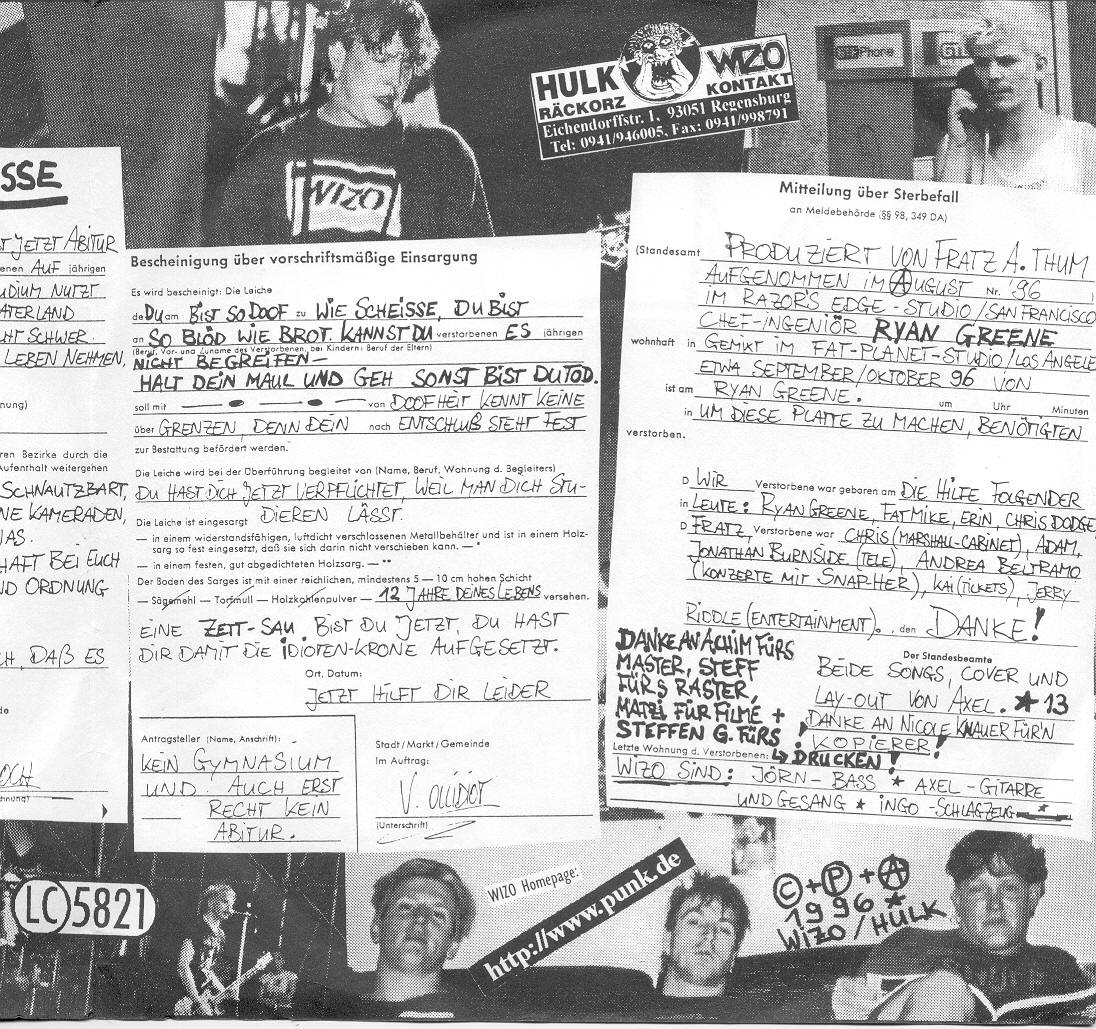 HULK WIZO
RÄCKORZ KONTAKT
Eichendorffstr. 1, 93051 Regensburg
Tel: 0941/946005, Fax: 0941/998791
WIZO
SSE
T JETZT ABITUR
enen AUF jährigen
UDIUM NUTZT
ATERLAND
HT SCHWER.
LEBEN NEHMEN,
nung)
ren Bezirke durch die
Aufenthalt weitergehen
SCHNAUTZBART,
NE KAMERADEN,
NAS.
HAFT BEI EUCH
ND ORDNUNG
CH, DAß ES
de
OCH
hnung)
Bescheinigung über vorschriftsmäßige Einsargung
Es wird bescheinigt: Die Leiche
de DU am BIST SO DOOF zu WIE SCHEISSE, DU BIST
an SO BLÖD WIE BROT. KANNST DU verstorbenen ES jährigen
(Beruf, Vor- und Zuname des Verstorbenen, bei Kindern: Beruf der Eltern)
NICHT BEGREIFEN
HALT DEIN MAUL UND GEH SONST BIST DU TOD.
soll mit von DOOFHEIT KENNT KEINE
über GRENZEN, DENN DEIN nach ENTSCHLUß STEHT FEST
zur Bestattung befördert werden.
Die Leiche wird bei der Überführung begleitet von (Name, Beruf, Wohnung d. Begleiters)
DU HAST DICH JETZT VERPFLICHTET, WEIL MAN DICH STU-
Die Leiche ist eingesargt DIEREN LÄSST.
— in einem widerstandsfähigen, luftdicht verschlossenen Metallbehälter und ist in einem Holz-
sarg so fest eingesetzt, daß sie sich darin nicht verschieben kann. — *
— in einem festen, gut abgedichteten Holzsarg. — **
Der Boden des Sarges ist mit einer reichlichen, mindestens 5 — 10 cm hohen Schicht
— Sägemehl — Torfmull — Holzkohlenpulver — 12 JAHRE DEINES LEBENS versehen.
EINE ZETT-SAU BIST DU JETZT, DU HAST
DIR DAMIT DIE IDIOTEN-KRONE AUFGESETZT.
Ort, Datum:
JETZT HILFT DIR LEIDER
Antragsteller (Name, Anschrift):
KEIN GYMNASIUM
UND AUCH ERST
RECHT KEIN
ABITUR.
Stadt/Markt/Gemeinde
Im Auftrag:
(Unterschrift)
Mitteilung über Sterbefall
an Meldebehörde (§§ 98, 349 DA)
(Standesamt PRODUZIERT VON FRATZ A. THUM
AUFGENOMMEN IM AUGUST Nr. '96
IM RAZOR'S EDGE-STUDIO/SAN FRANCISCO
CHEF-INGENIÖR RYAN GREENE
wohnhaft in GEMIXT IM FAT-PLANET-STUDIO/LOS ANGELE
ETWA SEPTEMBER/OKTOBER 96 VON
ist am RYAN GREENE. um Uhr Minuten
in UM DIESE PLATTE ZU MACHEN, BENÖTIGTEN
verstorben.
D WIR Verstorbene war geboren am DIE HILFE FOLGENDER
in LEUTE: RYAN GREENE, FAT MIKE, ERIN, CHRIS DODGE,
D FRATZ, Verstorbene war CHRIS (MARSHALL-CABINET), ADAM,
JONATHAN BURNSIDE (TELE), ANDREA BELTRAMO
(KONZERTE MIT SNAP-HER), KAI (TICKETS), JERRY
RIDDLE (ENTERTAINMENT)., den DANKE!
Der Standesbeamte
DANKE AN ACHIM FÜRS
MASTER, STEFF
FÜRS RASTER,
MATZI FÜR FILME +
STEFFEN G. FÜRS
DRUCKEN!
BEIDE SONGS, COVER UND
LAY-OUT VON AXEL. ★13
DANKE AN NICOLE KNAUER FÜR'N
! KOPIERER!
Letzte Wohnung d. Verstorbenen:
WIZO SIND: JÖRN - BASS ★ AXEL - GITARRE
UND GESANG ★ INGO - SCHLAGZEUG ★
LC 5821
WIZO Homepage:
http://www.punk.de
© + Ⓟ + Ⓐ
1996 *
WIZO/HULK